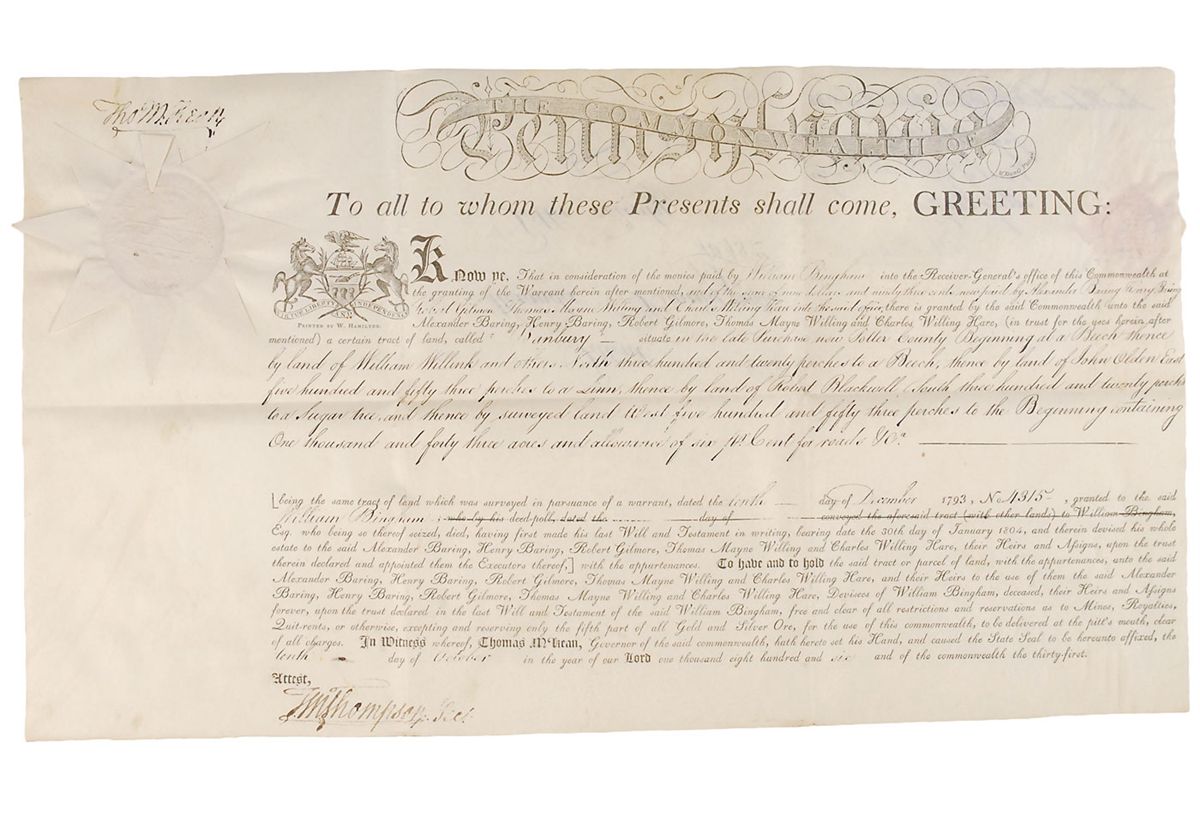 Tho M:Kean
Pennsylvania
THE COMMONWEALTH OF
To all to whom these Presents shall come, GREETING:
PRINTED BY W. HAMILTON.
Know ye, That in consideration of the monies paid by William Bingham into the Receiver-General's office of this Commonwealth at
the granting of the Warrant herein after mentioned, and of the sum of nine dollars and ninety three cents now paid by Alexander Baring Henry Baring
Thomas Mayne Willing and Charles Willing Hare into the said office, there is granted by the said Commonwealth unto the said
Alexander Baring, Henry Baring, Robert Gilmore, Thomas Mayne Willing and Charles Willing Hare, (in trust for the uses herein after
mentioned) a certain tract of land, called "Danbury" situate in the late Purchase now Potter County Beginning at a Beech thence
by land of William Willink and others North three hundred and twenty perches to a Beech, thence by land of John Olden East
five hundred and fifty three perches to a Linn, thence by land of Robert Blackwell South three hundred and twenty perches
to a Sugar tree, and thence by surveyed land West five hundred and fifty three perches to the Beginning Containing
One thousand and forty three acres and allowance of six pr Cent for roads &c.
[being the same tract of land which was surveyed in pursuance of a warrant, dated the tenth day of December 1793, No 4315, granted to the said
William Bingham, who by his deed-poll, dated the day of conveyed the aforesaid tract (with other lands) to William Bingham,
Esq. who being so thereof seized, died, having first made his last Will and Testament in writing, bearing date the 30th day of January 1804, and therein devised his whole
estate to the said Alexander Baring, Henry Baring, Robert Gilmore, Thomas Mayne Willing and Charles Willing Hare, their Heirs and Assigns, upon the trust
therein declared and appointed them the Executors thereof,] with the appurtenances. To have and to hold the said tract or parcel of land, with the appurtenances, unto the said
Alexander Baring, Henry Baring, Robert Gilmore, Thomas Mayne Willing and Charles Willing Hare, and their Heirs to the use of them the said Alexander
Baring, Henry Baring, Robert Gilmore, Thomas Mayne Willing and Charles Willing Hare, Devisees of William Bingham, deceased, their Heirs and Assigns
forever, upon the trust declared in the last Will and Testament of the said William Bingham, free and clear of all restrictions and reservations as to Mines, Royalties,
Quit-rents, or otherwise, excepting and reserving only the fifth part of all Gold and Silver Ore, for the use of this commonwealth, to be delivered at the pitt's mouth, clear
of all charges. In Witness whereof, Thomas M'Kean, Governor of the said commonwealth, hath hereto set his Hand, and caused the State Seal to be hereunto affixed, the
tenth day of October in the year of our Lord one thousand eight hundred and six and of the commonwealth the thirty-first.
Attest,
T.M. Thompson, Secr.